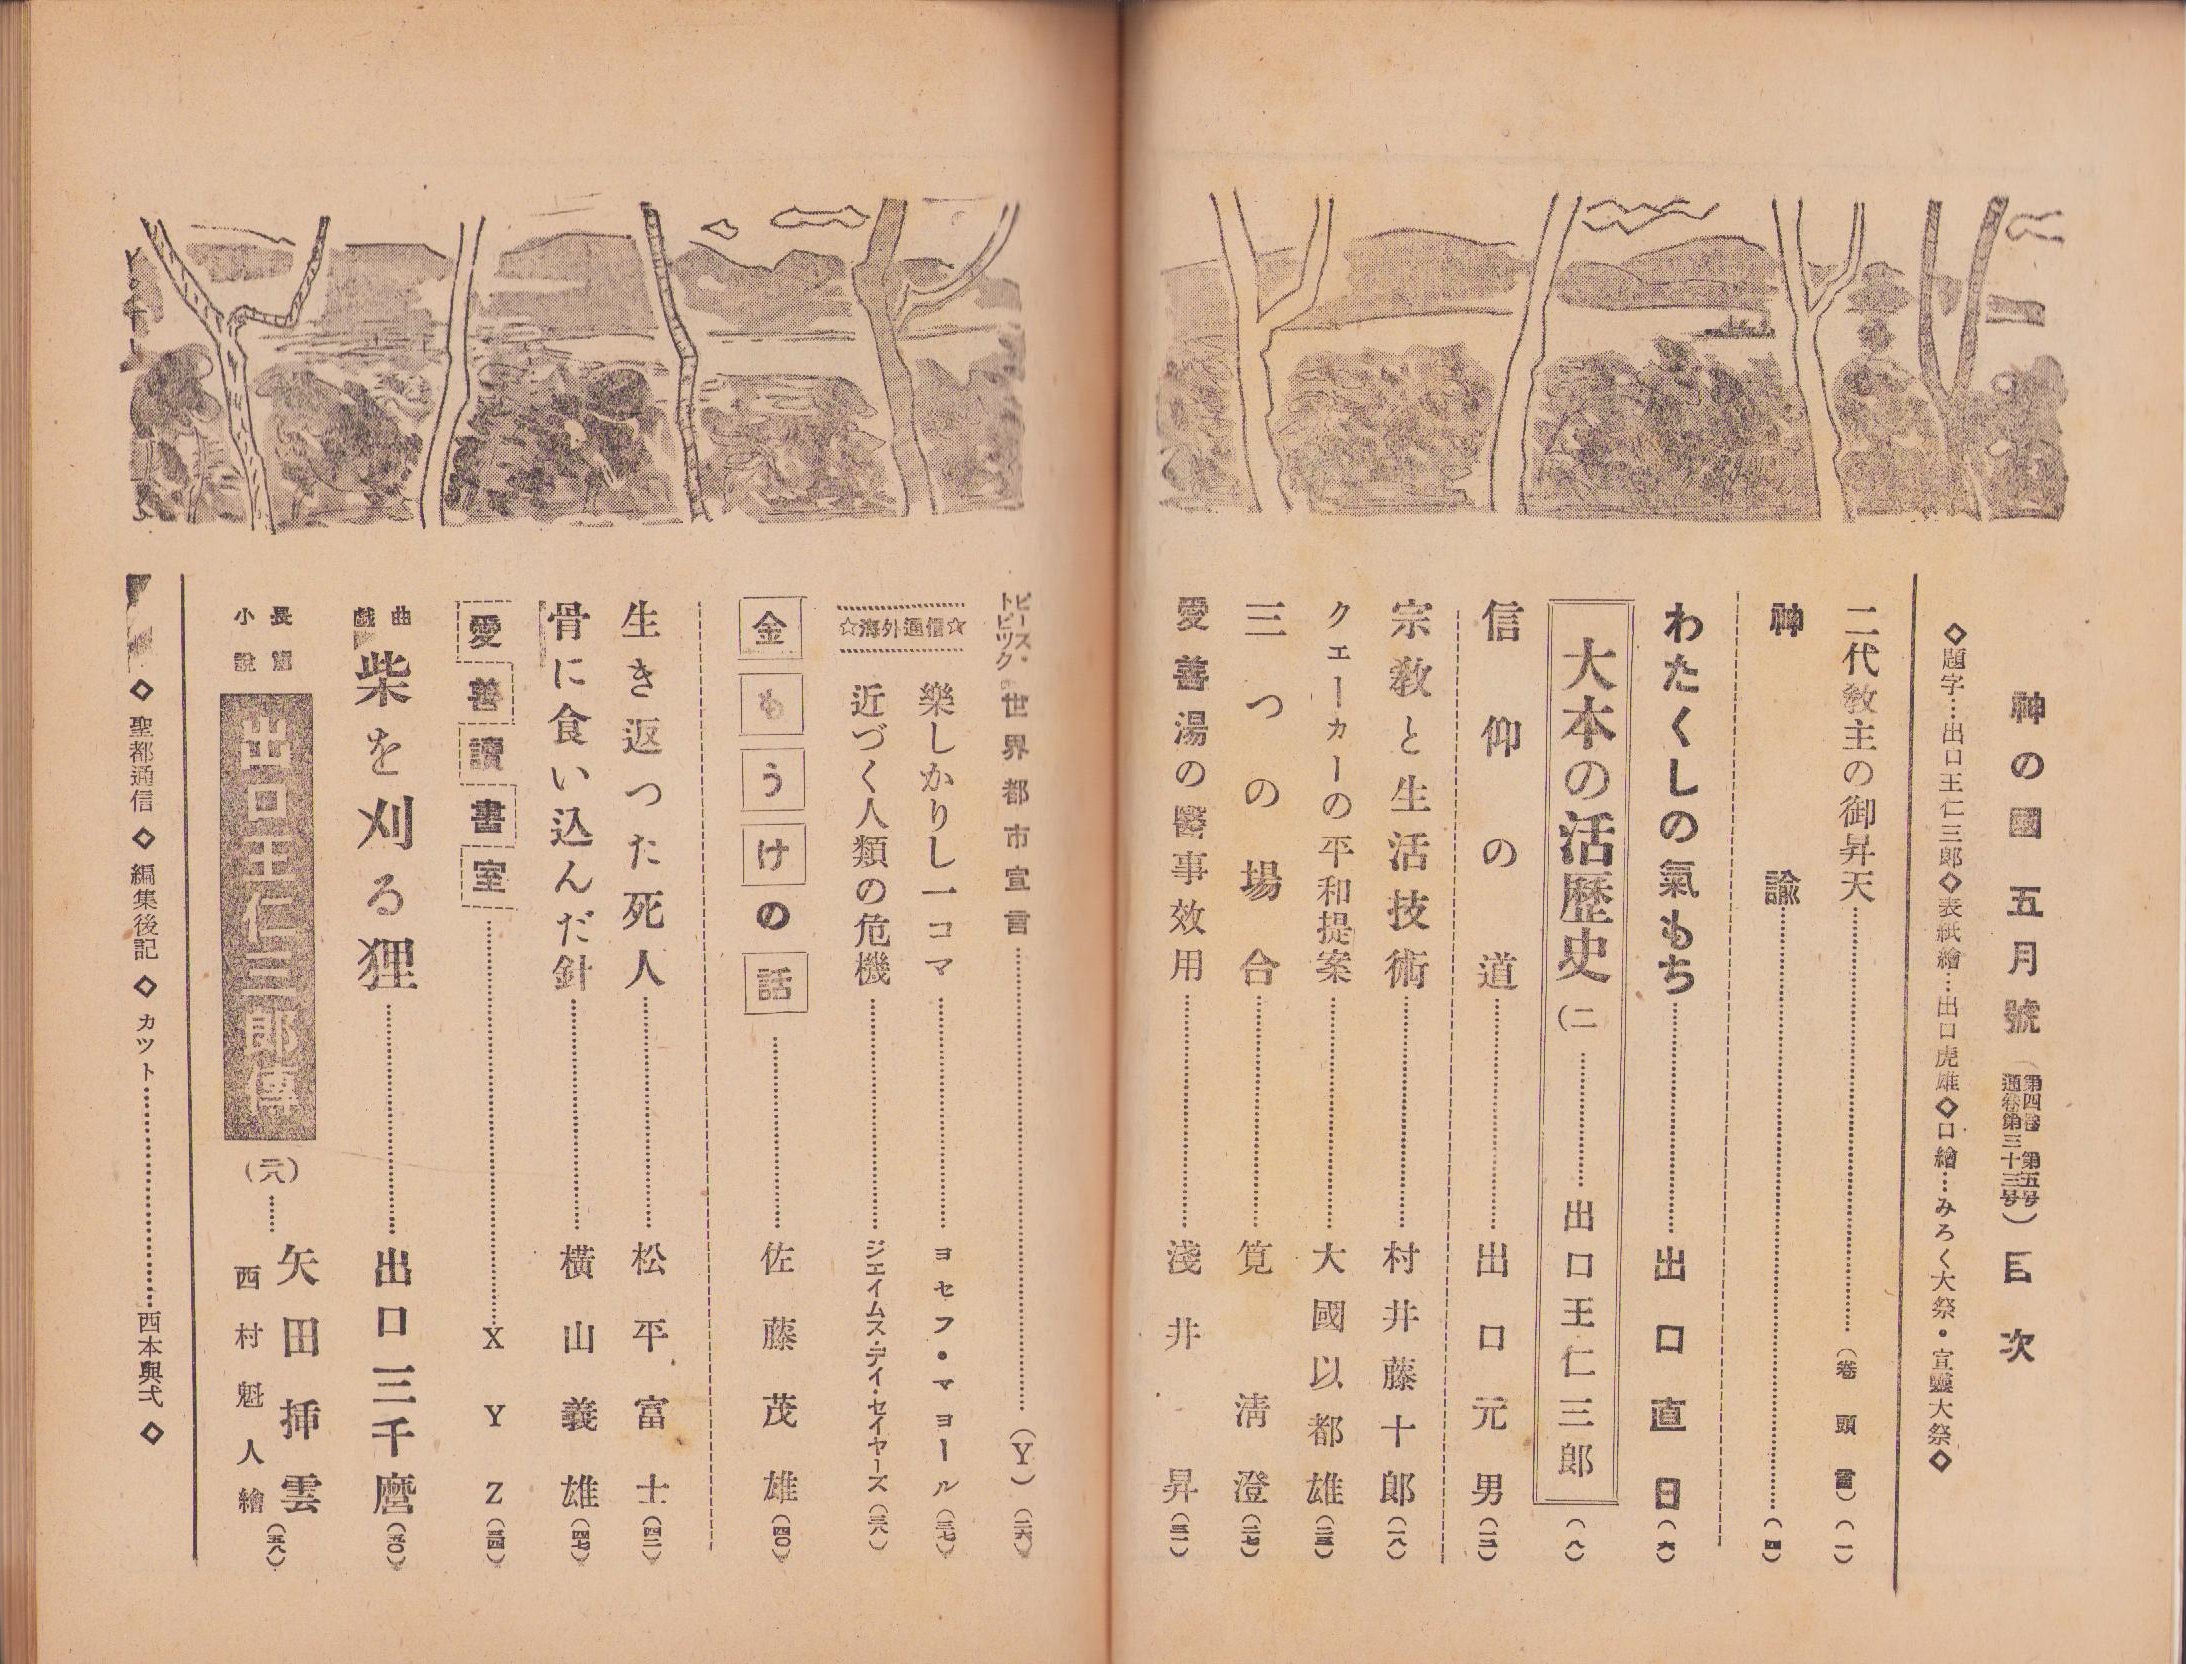 神の國 五月號 (第四卷 第五号 通卷第三十三号) 目次
◇題字…出口王仁三郎◇表紙繪…出口虎雄◇口繪…みろく大祭・宣靈大祭◇
二代教主の御昇天……(卷頭言)(一)
神諭……(四)
わたくしの氣もち……出口直日(六)
大本の活歴史(二……出口王仁三郎(八)
信仰の道……出口元男(一三)
宗教と生活技術……村井藤十郎(一八)
クェーカーの平和提案……大國以都雄(二三)
三つの場合……筧清澄(二七)
愛善湯の醫事效用……淺井昇(三一)
ピース・トピツク 世界都市宣言……(Y)(二六)
☆海外通信☆
樂しかりし一コマ……ヨセフ・マヨール(三七)
近づく人類の危機……ジエイムス・デイ・セイヤーズ(三八)
金もうけの話……佐藤茂雄(四〇)
生き返つた死人……松平富士(四二)
骨に食い込んだ針……横山義雄(四七)
愛善讀書室……XYZ(三四)
戯曲 柴を刈る狸……出口三千麿(五〇)
長篇小説 出口王仁三郎傳(六)……矢田挿雲 西村魁人繪(五八)
◇聖都通信◇編集後記◇カツト……西本與弍◇